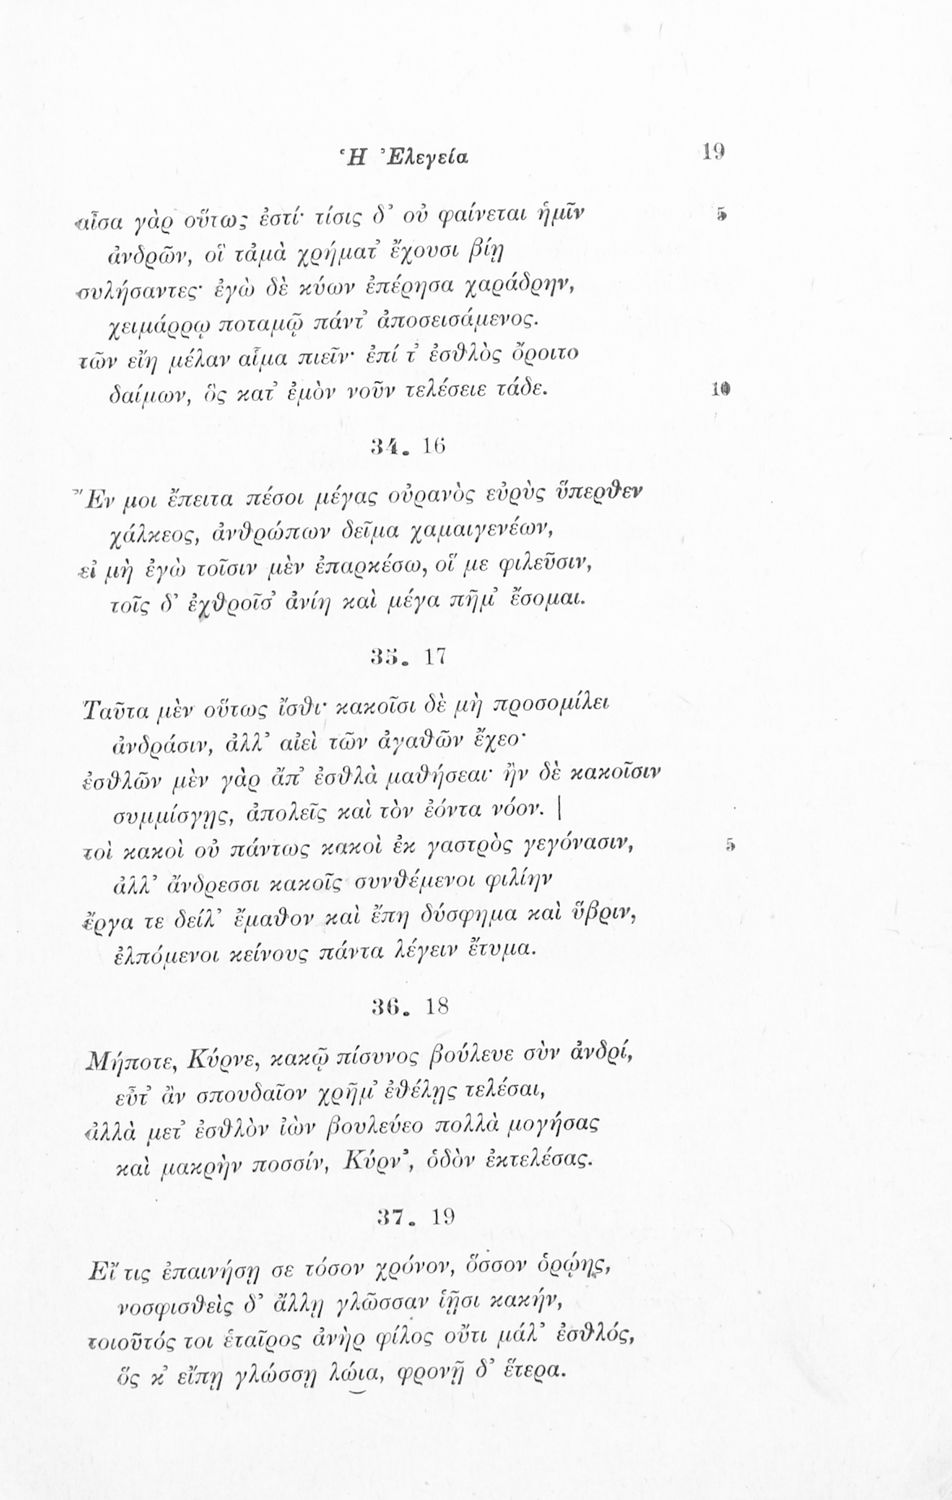 Ἡ Ἐλεγεία 19
αἶσα γὰρ οὕτως ἐστί· τίσις δ’ οὐ φαίνεται ἡμῖν 5
ἀνδρῶν, οἳ τἀμὰ χρήματ’ ἔχουσι βίῃ
συλήσαντες· ἐγὼ δὲ κύων ἐπέρησα χαράδρην,
χειμάρρῳ ποταμῷ πάντ’ ἀποσεισάμενος.
τῶν εἴη μέλαν αἷμα πιεῖν· ἐπί τ’ ἐσθλὸς ὄροιτο
δαίμων, ὃς κατ’ ἐμὸν νοῦν τελέσειε τάδε. 10
34. 16
Ἔν μοι ἔπειτα πέσοι μέγας οὐρανὸς εὐρὺς ὕπερθεν
χάλκεος, ἀνθρώπων δεῖμα χαμαιγενέων,
εἰ μὴ ἐγὼ τοῖσιν μὲν ἐπαρκέσω, οἵ με φιλεῦσιν,
τοῖς δ’ ἐχθροῖσ’ ἀνίη καὶ μέγα πῆμ’ ἔσομαι.
35. 17
Ταῦτα μὲν οὕτως ἴσθι· κακοῖσι δὲ μὴ προσομίλει
ἀνδράσιν, ἀλλ’ αἰεὶ τῶν ἀγαθῶν ἔχεο·
ἐσθλῶν μὲν γὰρ ἄπ’ ἐσθλὰ μαθήσεαι· ἢν δὲ κακοῖσιν
συμμίσγῃς, ἀπολεῖς καὶ τὸν ἐόντα νόον. |
τοὶ κακοὶ οὐ πάντως κακοὶ ἐκ γαστρὸς γεγόνασιν, 5
ἀλλ’ ἄνδρεσσι κακοῖς συνθέμενοι φιλίην
ἔργα τε δείλ’ ἔμαθον καὶ ἔπη δύσφημα καὶ ὕβριν,
ἐλπόμενοι κείνους πάντα λέγειν ἔτυμα.
36. 18
Μήποτε, Κύρνε, κακῷ πίσυνος βούλευε σὺν ἀνδρί,
εὖτ’ ἂν σπουδαῖον χρῆμ’ ἐθέλῃς τελέσαι,
ἀλλὰ μετ’ ἐσθλὸν ἰὼν βουλεύεο πολλὰ μογήσας
καὶ μακρὴν ποσσίν, Κύρν’, ὁδὸν ἐκτελέσας.
37. 19
Εἴ τις ἐπαινήσῃ σε τόσον χρόνον, ὅσσον ὁρῴης,
νοσφισθεὶς δ’ ἄλλῃ γλῶσσαν ἱῇσι κακήν,
τοιοῦτός τοι ἑταῖρος ἀνὴρ φίλος οὔτι μάλ’ ἐσθλός,
ὅς κ’ εἴπῃ γλώσσῃ λώια, φρονῇ δ’ ἕτερα.